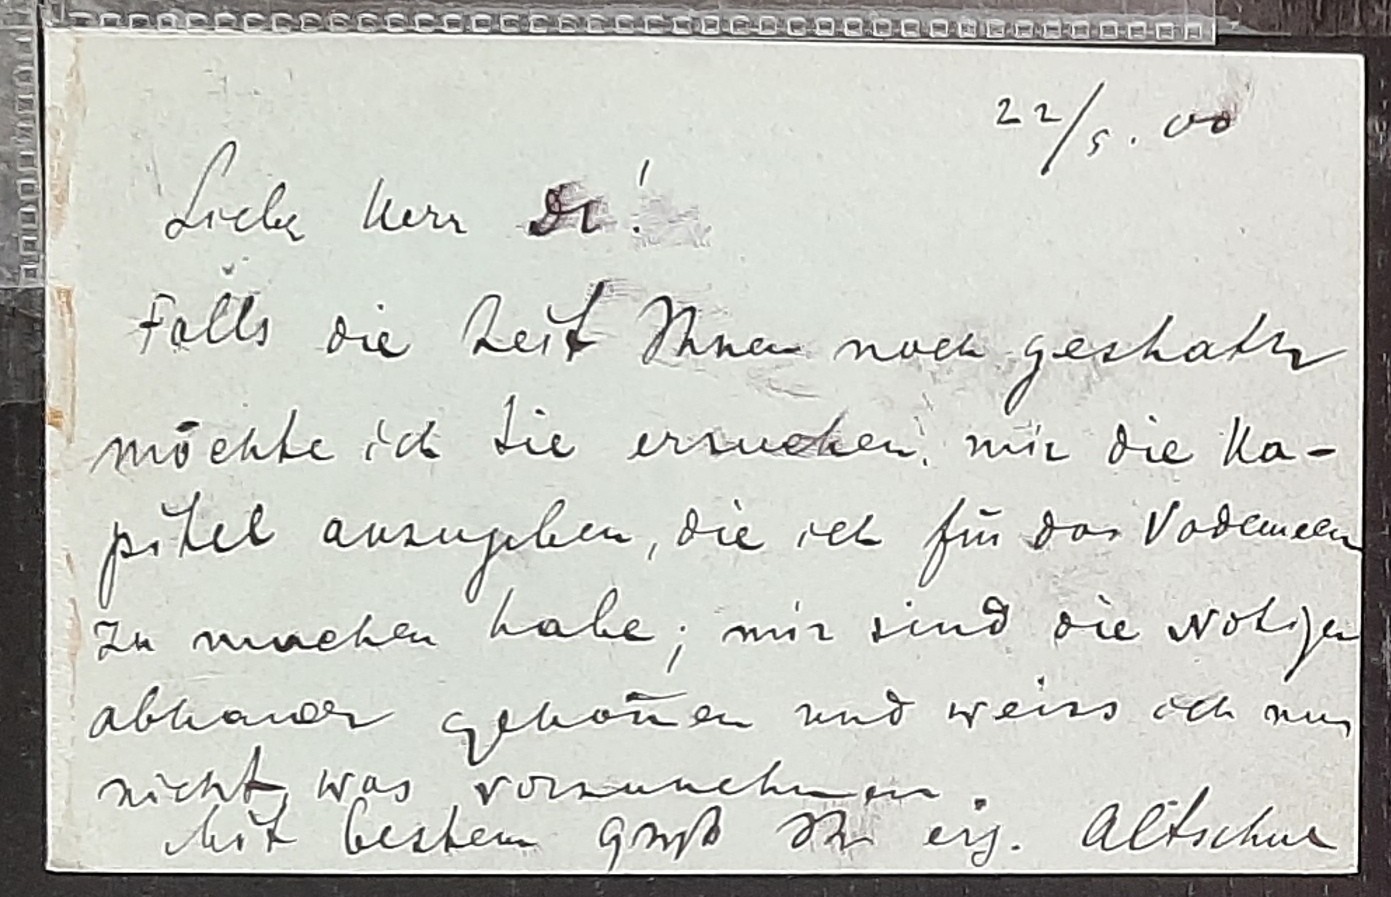 22/5. 00
Lieber Herr Dr!
Falls die Zeit Ihnen noch gestattet
möchte ich Sie ersuchen, mir die Ka-
pitel anzugeben, die ich für das Vademecum
zu machen habe; mir sind die Notizen
abhanden gekom̄en und weiss ich nun
nicht, was vorzunehmen.
Mit bestem Gruß Ihr erg. Altschul